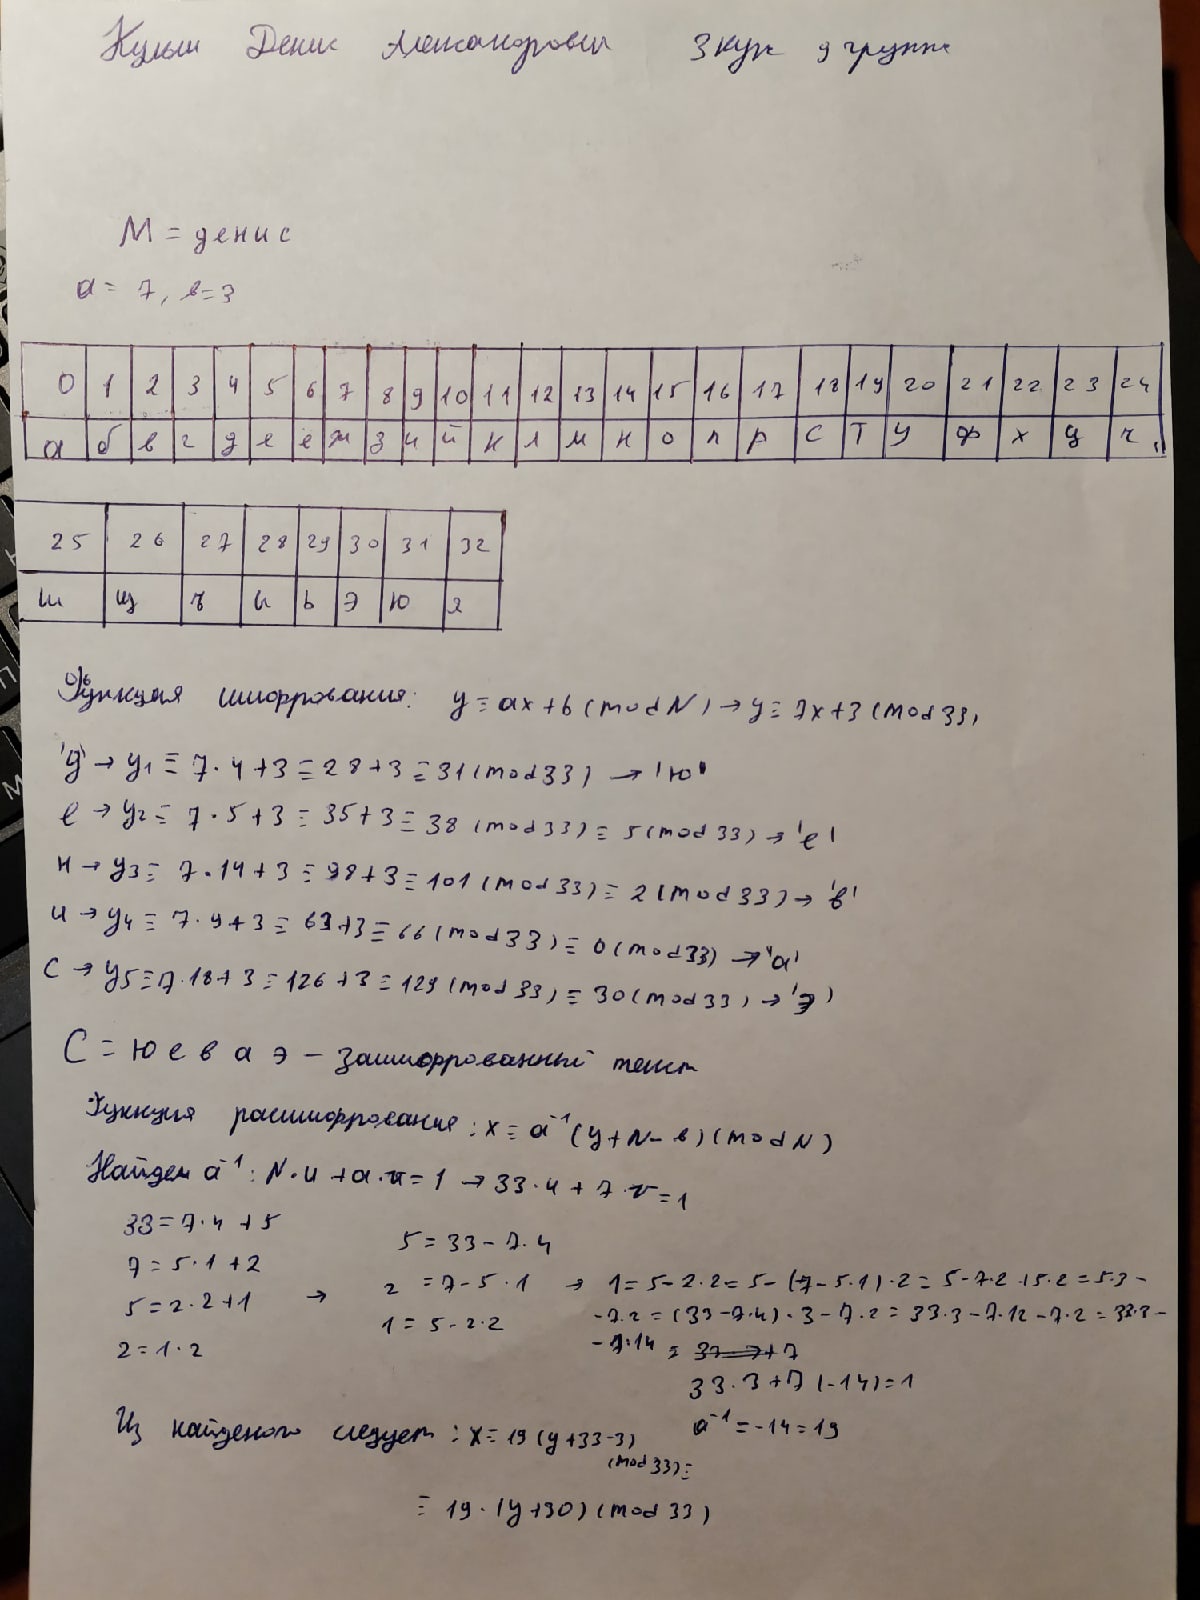 Денис Александрович 3 курс 9 группа
М = денис
а = 7, в=3
0 1 2 3 4 5 6 7 8 9 10 11 12 13 14 15 16 17 18 19 20 21 22 23 24
а б в г д е ё ж з и й к л м н о п р с т у ф х ц ч
25 26 27 28 29 30 31 32
ш щ ъ ы ь э ю я
Функция шифрования: y ≡ ax + b (mod N) → y ≡ 7x + 3 (mod 33)
'д' → y₁ ≡ 7·4+3 ≡ 28+3 ≡ 31 (mod 33) → 'ю'
е → y₂ ≡ 7·5+3 ≡ 35+3 ≡ 38 (mod 33) ≡ 5 (mod 33) → 'е'
н → y₃ ≡ 7·14+3 ≡ 98+3 ≡ 101 (mod 33) ≡ 2 (mod 33) → 'в'
и → y₄ ≡ 7·9+3 ≡ 63+3 ≡ 66 (mod 33) ≡ 0 (mod 33) → 'а'
с → y₅ ≡ 7·18+3 ≡ 126+3 ≡ 129 (mod 33) ≡ 30 (mod 33) → 'э'
С = ю е в а э – зашифрованный текст
Функция расшифрования: x ≡ a⁻¹ (y+N-в) (mod N)
Найдем a⁻¹: N·u + a·v = 1 → 33·u + 7·v = 1
33 = 7·4 + 5
7 = 5·1 + 2
5 = 2·2 + 1
2 = 1·2
→
5 = 33 - 7·4
2 = 7 - 5·1
1 = 5 - 2·2
→ 1 = 5 - 2·2 = 5 - (7 - 5·1)·2 = 5 - 7·2 + 5·2 = 5·3 -
- 7·2 = (33 - 7·4)·3 - 7·2 = 33·3 - 7·12 - 7·2 = 33·3 -
- 7·14 =
33·3 + 7(-14) = 1
a⁻¹ = -14 = 19
Из найденого следует: x ≡ 19 (y+33-3)
(mod 33) ≡
≡ 19·(y+30) (mod 33)